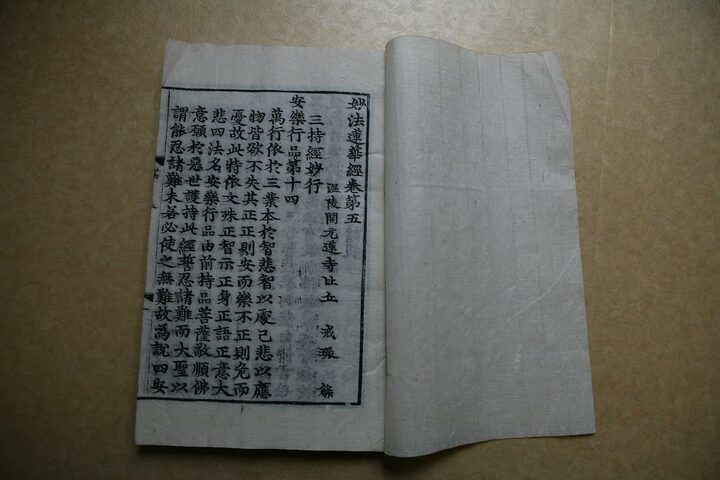 妙法蓮華經卷第五
溫陵開元蓮寺比丘 戒環 解
三持經妙行
安樂行品第十四
萬行依於三業本於智悲智以處己悲以應
物皆欲不失其正正則安而樂不正則危而
憂故此特依文殊正智示正身正語正意大
悲四法名安樂行品由前持品菩薩敬順佛
意願於惡世護持此經誓忍諸難而大聖以
謂能忍諸難未若必使之無難故為說四安